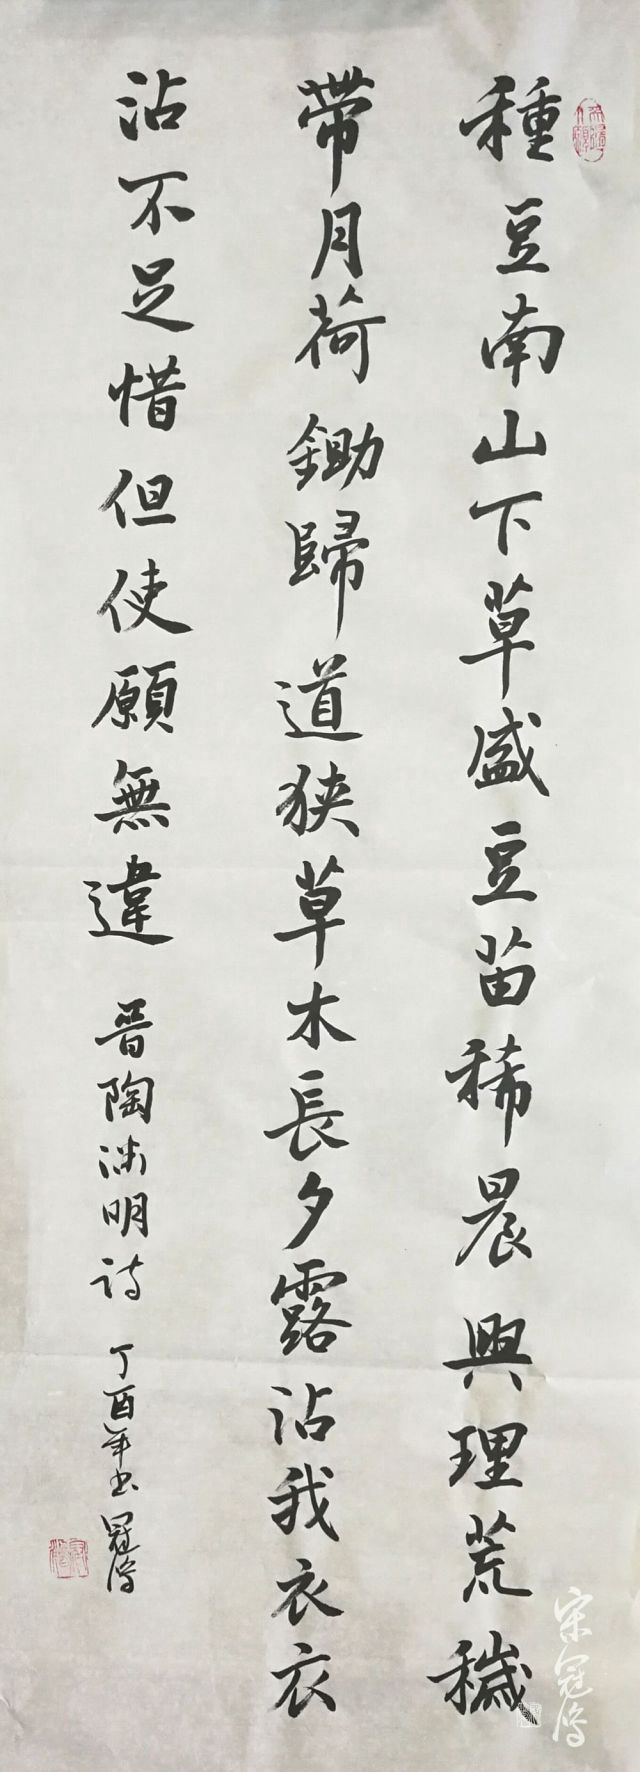 種豆南山下草盛豆苗稀晨興理荒穢
帶月荷鋤歸道狹草木長夕露沾我衣衣
沾不足惜但使願無違 晉陶渊明詩 丁酉年书 冠潯
宋冠潯